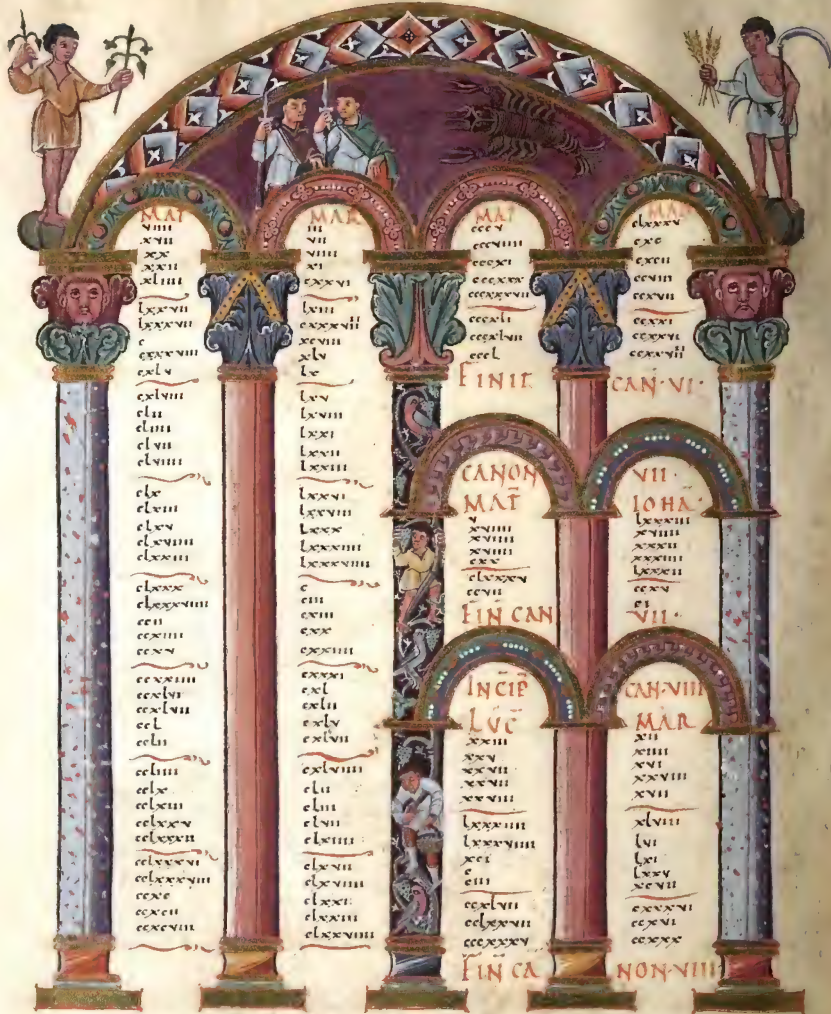 MAT
viiii
xvii
xx
xxii
xliiii
lxxvii
lxxxvii
c
cxxxviiii
cxlv
cxlviii
clii
cliiii
clvii
clviiii
clx
clxiii
clxv
clxviiii
clxxiii
clxxx
clxxxviiii
ccii
ccxiiii
ccxv
ccxxiiii
ccxlvi
ccxlvii
ccl
cclii
ccliiii
cclx
cclxiii
cclxxv
cclxxxii
cclxxxvi
cclxxxviii
ccxc
ccxcii
ccxcviii
MAR
iii
vii
viiii
xi
cxxvi
lxiii
cxxxvii
xcviii
xlv
lx
lxv
lxviiii
lxxi
lxxii
lxxiii
lxxvi
lxxviii
lxxx
lxxxiiii
lxxxviiii
c
ciii
cxiii
cxx
cxxiiii
cxxxi
cxl
cxlii
cxlv
cxlvii
cxlviiii
clii
cliii
clvii
clxiiii
clxvii
clxviiii
clxxi
clxxiii
clxxviiii
MAT
cccv
cccviiii
cccxi
cccxxx
cccxxxvii
cccxli
cccxlvii
cccl
MAR
clxxxv
cxc
cxcii
ccviii
ccvii
ccxxi
ccxxvi
ccxxvii
FINIT CAN·VI·
CANON VII·
MAT̄
v
xviiii
xviiii
xviiii
cxx
clxxxv
ccvii
IOHA
lxxxiii
xviiii
xxxii
xxxiiii
lxxxii
ccxv
ci
FIN CAN VII·
INCIP̄ CAN·VIII
LVC̄
xxiii
xxv
xxvii
xxvii
xxviii
lxxxiiii
lxxxviiii
xci
c
ciii
ccxlvii
cclxxvii
cccxxxv
MAR
xii
xiiii
xvi
xxviii
xvii
xlviii
lvi
lxi
lxxv
xcvii
cxxxvi
ccxvi
ccxxx
FIN CA NON·VIII